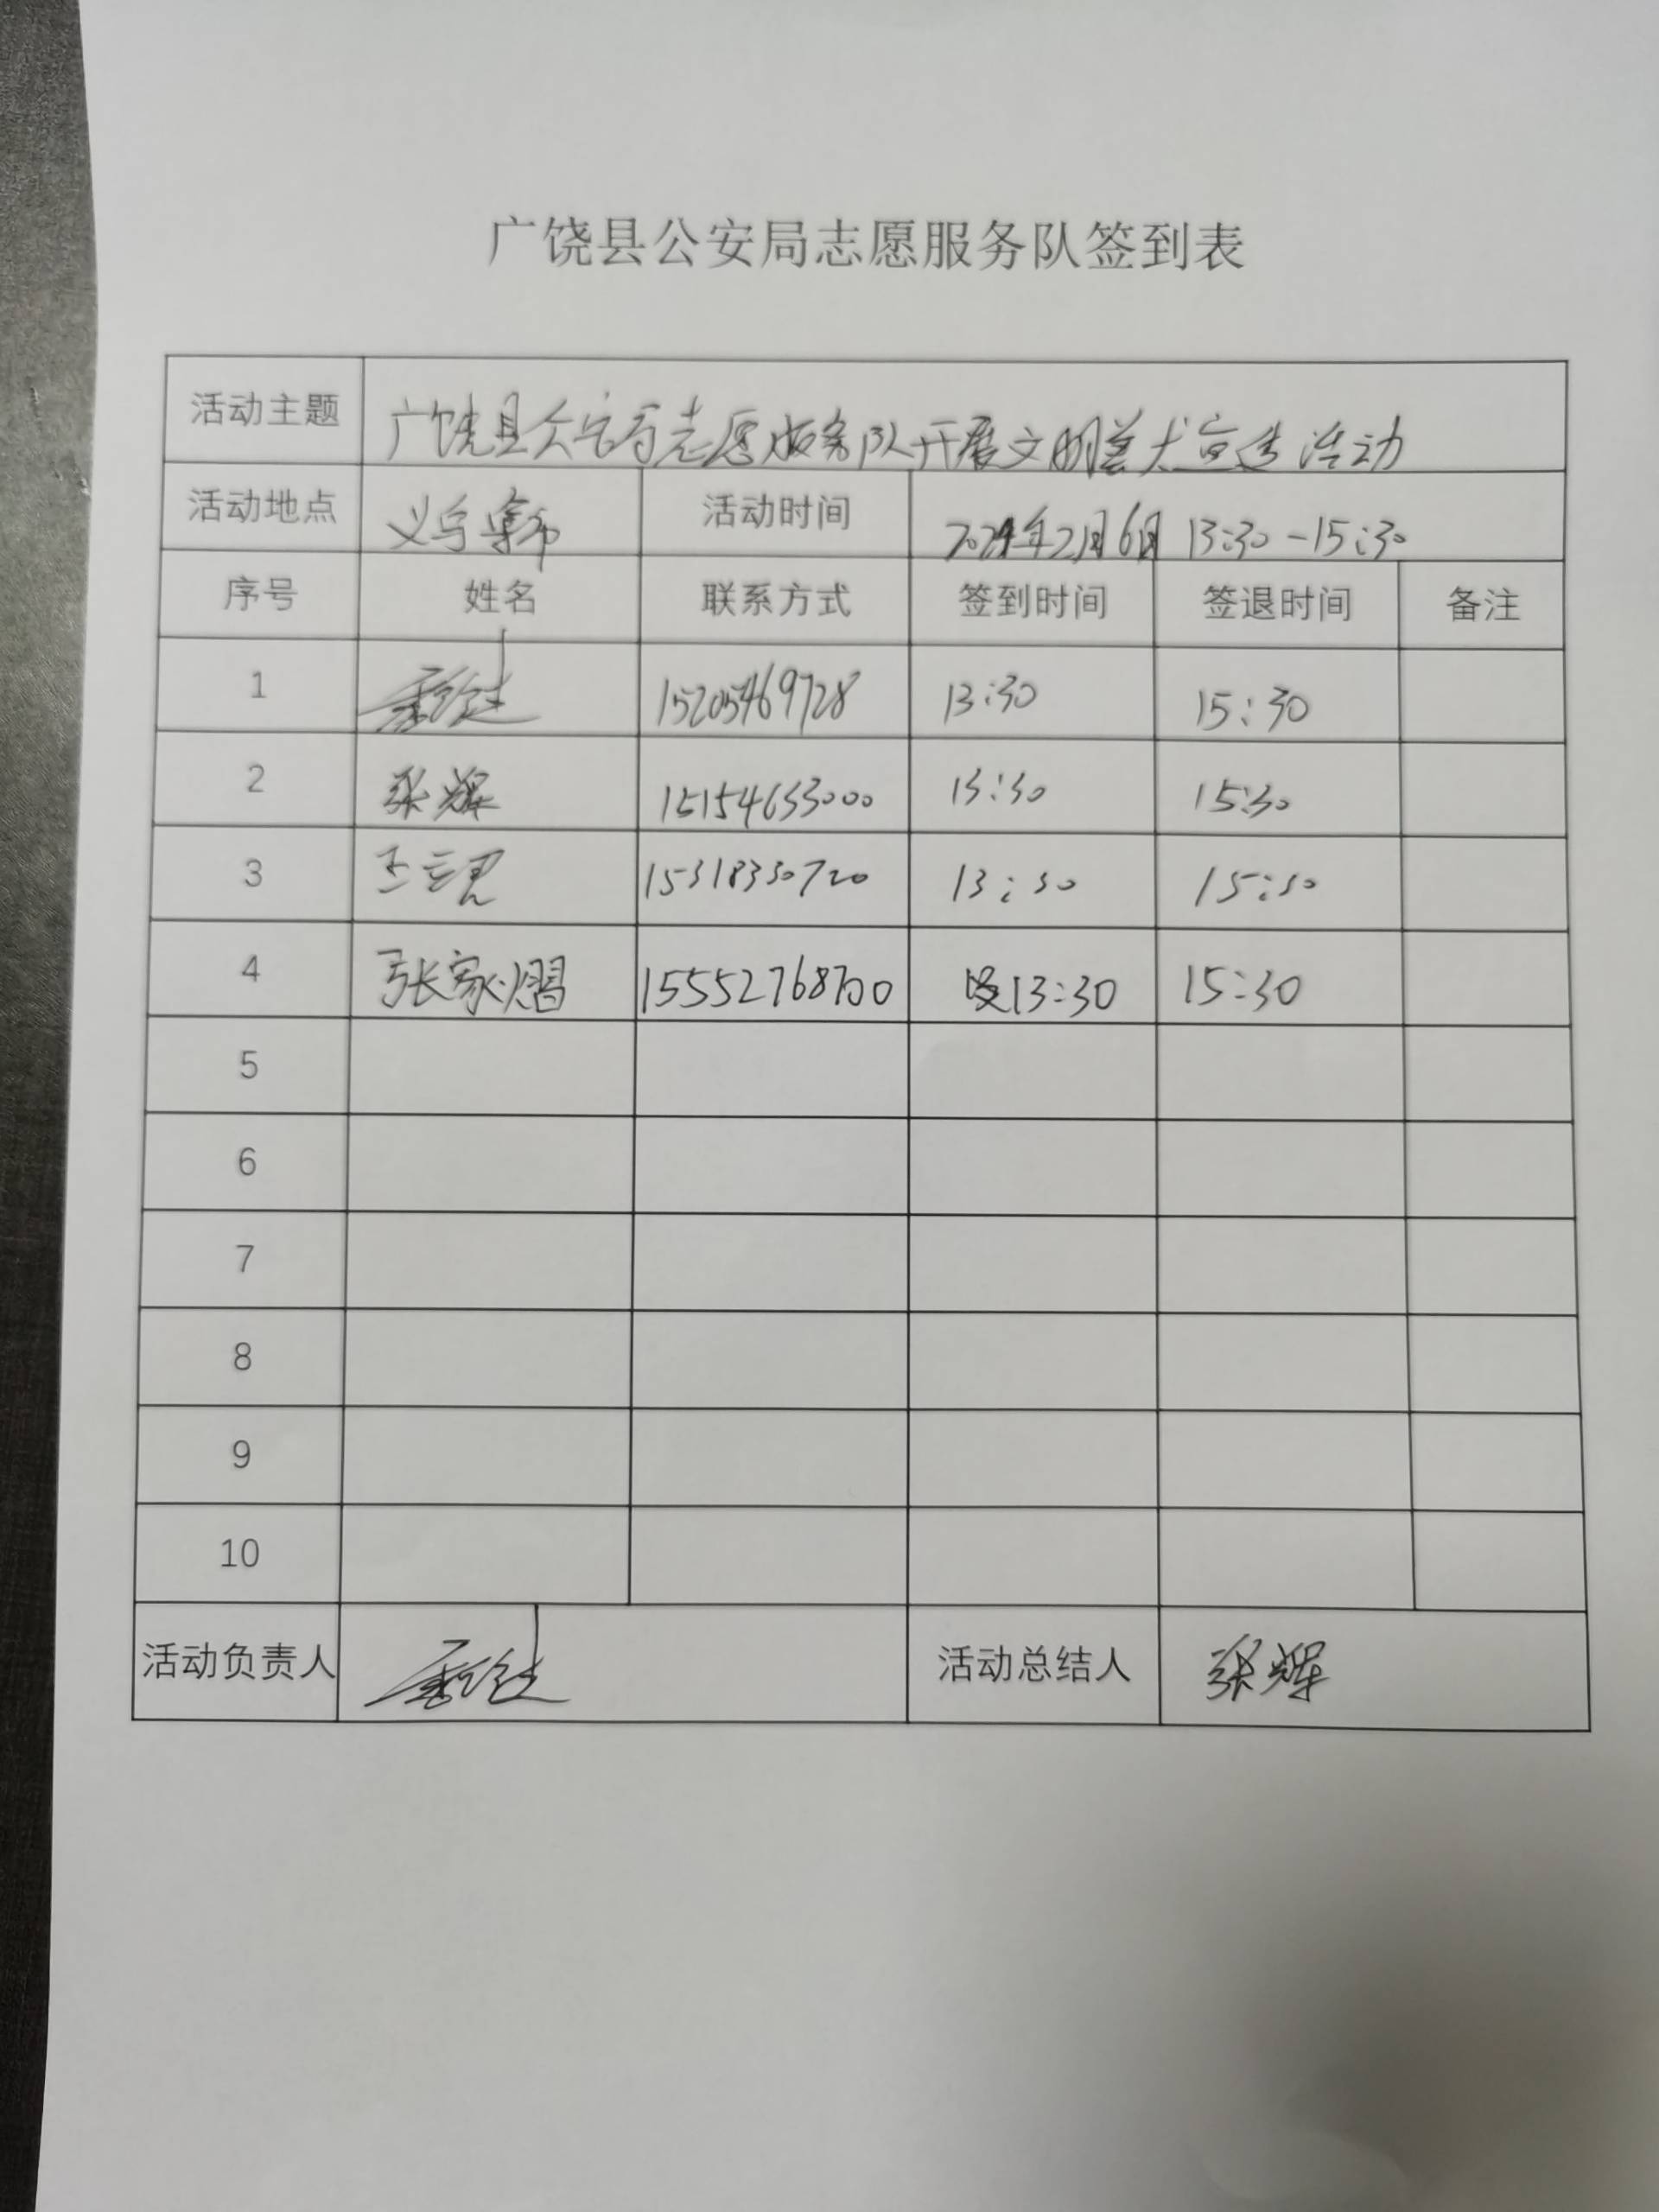 广饶县公安局志愿服务队签到表
活动主题 广饶县公安局志愿服务队开展文明养犬宣传活动
活动地点 义乌 活动时间 2024年2月6日 13:30-15:30
序号 姓名 联系方式 签到时间 签退时间 备注
1 15205469728 13:30 15:30
2 张辉 15154633000 13:30 15:30
3 王 15318330720 13:30 15:30
4 张家熠 15552768700 13:30 15:30
5
6
7
8
9
10
活动负责人 活动总结人 张辉